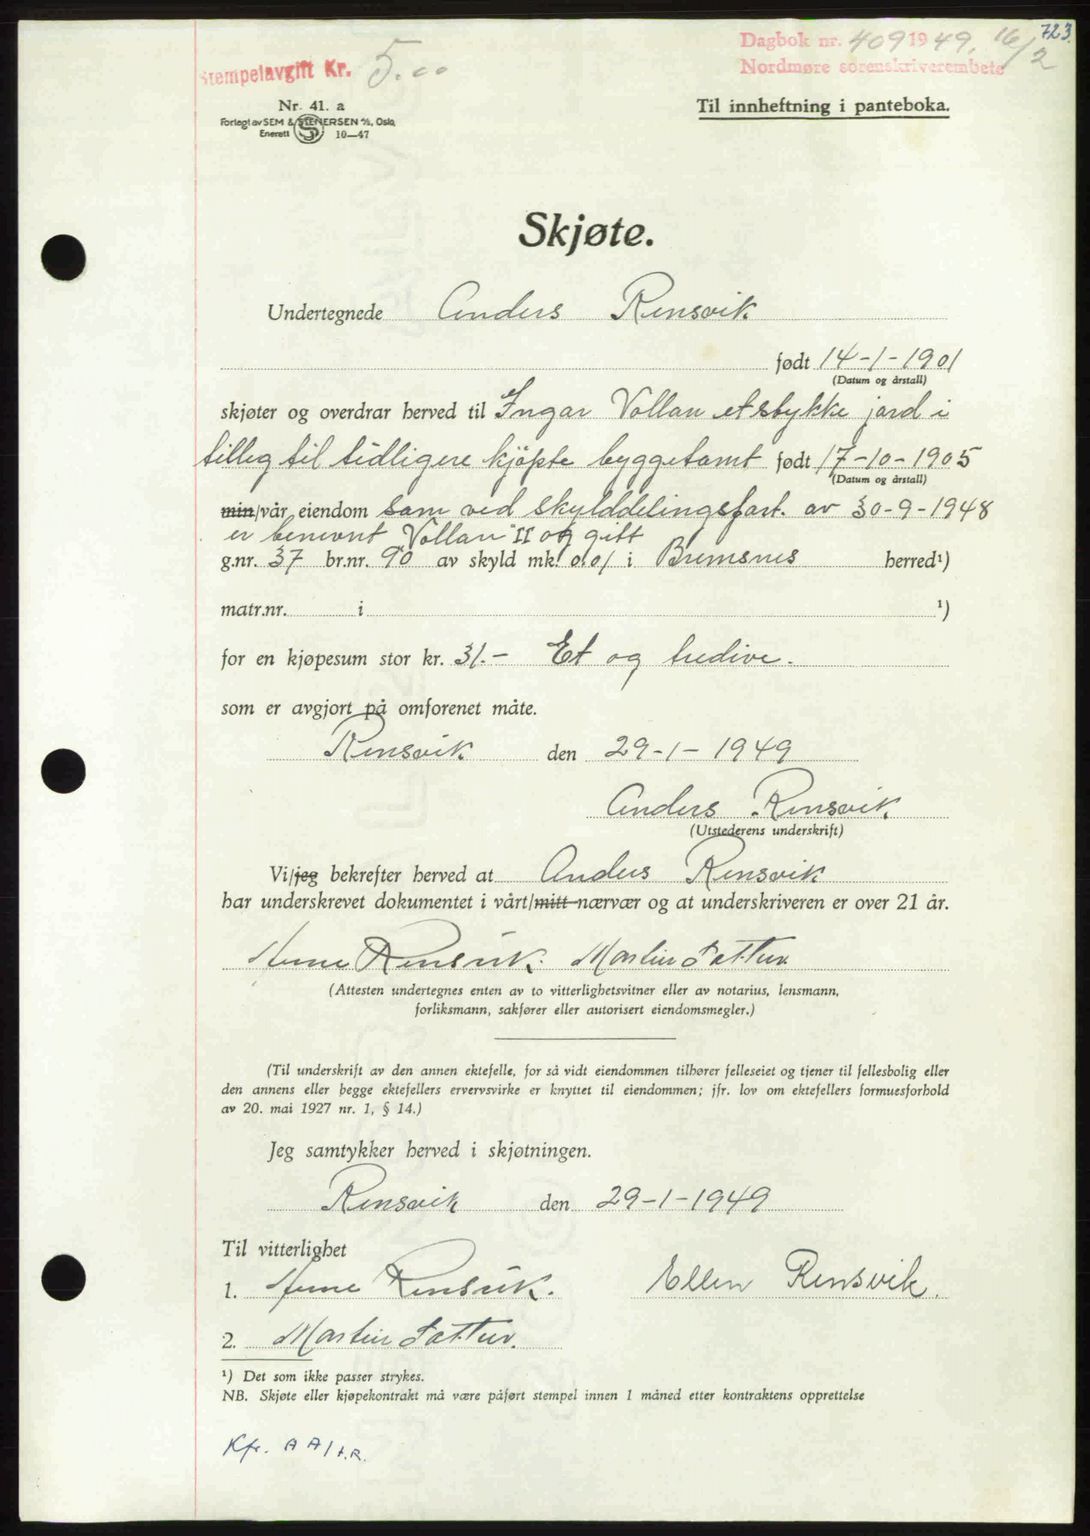 723.
Dagbok nr. 409 1949. 16/2
Nordmøre sorenskriverembete
Stempelavgift Kr. 5.00
Nr. 41. a
Forlegt av SEM & STENERSEN A/S, Oslo,
Enerett S 10—47
Til innheftning i panteboka.
Skjøte.
Undertegnede Anders Rensvik
født 14-1-1901
(Datum og årstall)
skjøter og overdrar herved til Ingar Vollan et stykke jord i
tilleg til tidligere kjøpte byggetomt født 17-10-1905
(Datum og årstall)
min/vår eiendom som ved skylddelingsforr. av 30-9-1948
er benevnt Vollan II og gitt
g.nr. 37 br.nr. 90 av skyld mk. 0.01 i Bremsnes herred¹)
matr.nr. i ¹)
for en kjøpesum stor kr. 31.- Et og tredive.
som er avgjort på omforenet måte.
Rensvik den 29-1-1949
Anders Rensvik
(Utstederens underskrift)
Vi/jeg bekrefter herved at Anders Rensvik
har underskrevet dokumentet i vårt/mitt nærvær og at underskriveren er over 21 år.
Rensvik. Martin
(Attesten undertegnes enten av to vitterlighetsvitner eller av notarius, lensmann,
forliksmann, sakfører eller autorisert eiendomsmegler.)
(Til underskrift av den annen ektefelle, for så vidt eiendommen tilhører felleseiet og tjener til fellesbolig eller
den annens eller begge ektefellers ervervsvirke er knyttet til eiendommen; jfr. lov om ektefellers formuesforhold
av 20. mai 1927 nr. 1, § 14.)
Jeg samtykker herved i skjøtningen.
Rensvik den 29-1-1949
Til vitterlighet
1. Rensvik. Ellen Rensvik.
2. Martin
¹) Det som ikke passer strykes.
NB. Skjøte eller kjøpekontrakt må være påført stempel innen 1 måned etter kontraktens opprettelse
Kfr. AA/t.R.